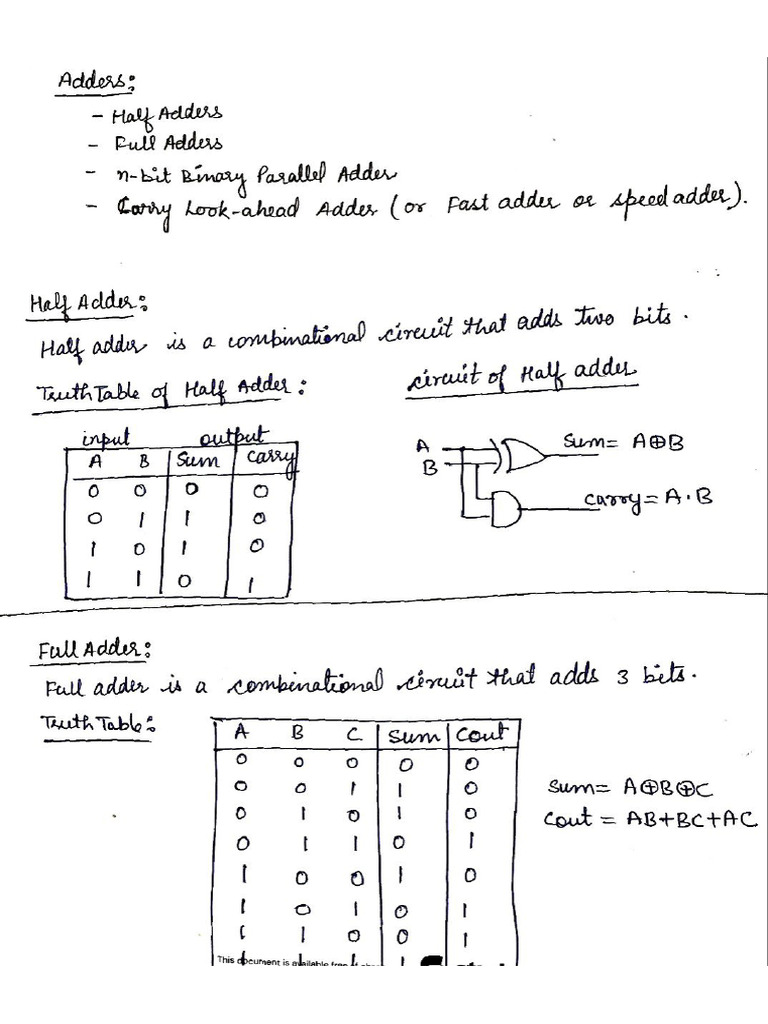 Adders:
- Half Adders
- Full Adders
- n-bit Binary Parallel Adder
- Carry Look-ahead Adder (or Fast adder or speed adder).
Half Adder:
Half adder is a combinational circuit that adds two bits.
Truth Table of Half Adder:
input output
A B Sum Carry
0 0 0 0
0 1 1 0
1 0 1 0
1 1 0 1
circuit of Half adder
A
B
Sum = A⊕B
carry = A.B
Full Adder:
Full adder is a combinational circuit that adds 3 bits.
Truth Table:
A B C Sum Cout
0 0 0 0 0
0 0 1 1 0
0 1 0 1 0
0 1 1 0 1
1 0 0 1 0
1 0 1 0 1
1 1 0 0 1
1 1 1 1
Sum = A⊕B⊕C
Cout = AB+BC+AC
This document is available free